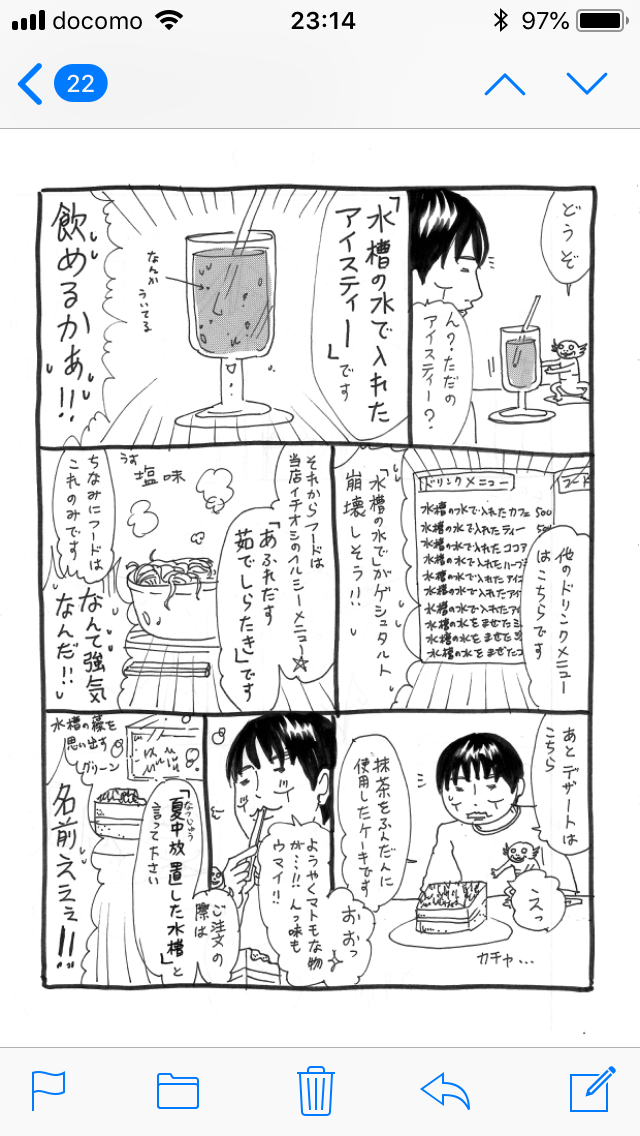 docomo
23:14
97%
22
どうぞ
ん？ただの
アイスティー？
「水槽の水で入れた
アイスティー」です
なんか
ういてる
飲めるかぁ!!
ドリンクメニュー
フード
水槽の水で入れたカフェ 500
水槽の水で入れたティー 50
水槽の水で入れたココア
水槽の水で入れたハーブテ
水槽の水で入れたアイ
水槽の水で入れたアイ
水槽の水で入れたアイ
水槽の水をまぜたミ
水槽の水をまぜた
水槽の水をまぜたコ
他のドリンクメニュー
はこちらです
「水槽の水で」がゲシュタルト
崩壊しそう!!
それからフードは
当店イチオシのヘルシーメニュー☆
「あふれだす
茹でしらたき」です
うす
塩味
ちなみにフードは
これのみです
なんて強気
なんだ!!
あとデザートは
こちら
えっ
カチャ…
抹茶をふんだんに
使用したケーキです
おおっ
ようやくマトモな物
が…!!んっ味も
ウマイ!!
ご注文の
際は
「夏中放置した水槽」と
なつじゅう
言って下さい
水槽の藻を
思い出す
グリーン
名前ええぇ!!